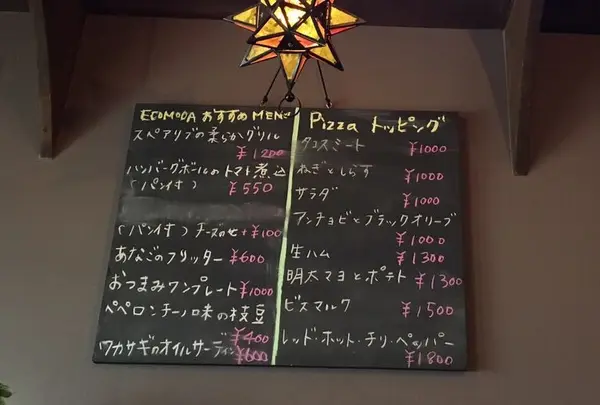 ECOMODA おすすめ MENU
スペアリブの柔らかグリル
¥1200
ハンバーグボールのトマト煮込
(パン付き) ¥550
(パン付き) チーズのせ +¥100
あなごのフリッター ¥600
おつまみワンプレート ¥1000
ペペロンチーノ味の枝豆
¥400
ワカサギのオイルサーディン ¥600
Pizza トッピング
タコスミート ¥1000
ねぎとしらす ¥1000
サラダ ¥1000
アンチョビとブラックオリーブ
¥1000
生ハム ¥1300
明太マヨとポテト ¥1300
ビスマルク ¥1500
レッド・ホット・チリ・ペッパー
¥1800